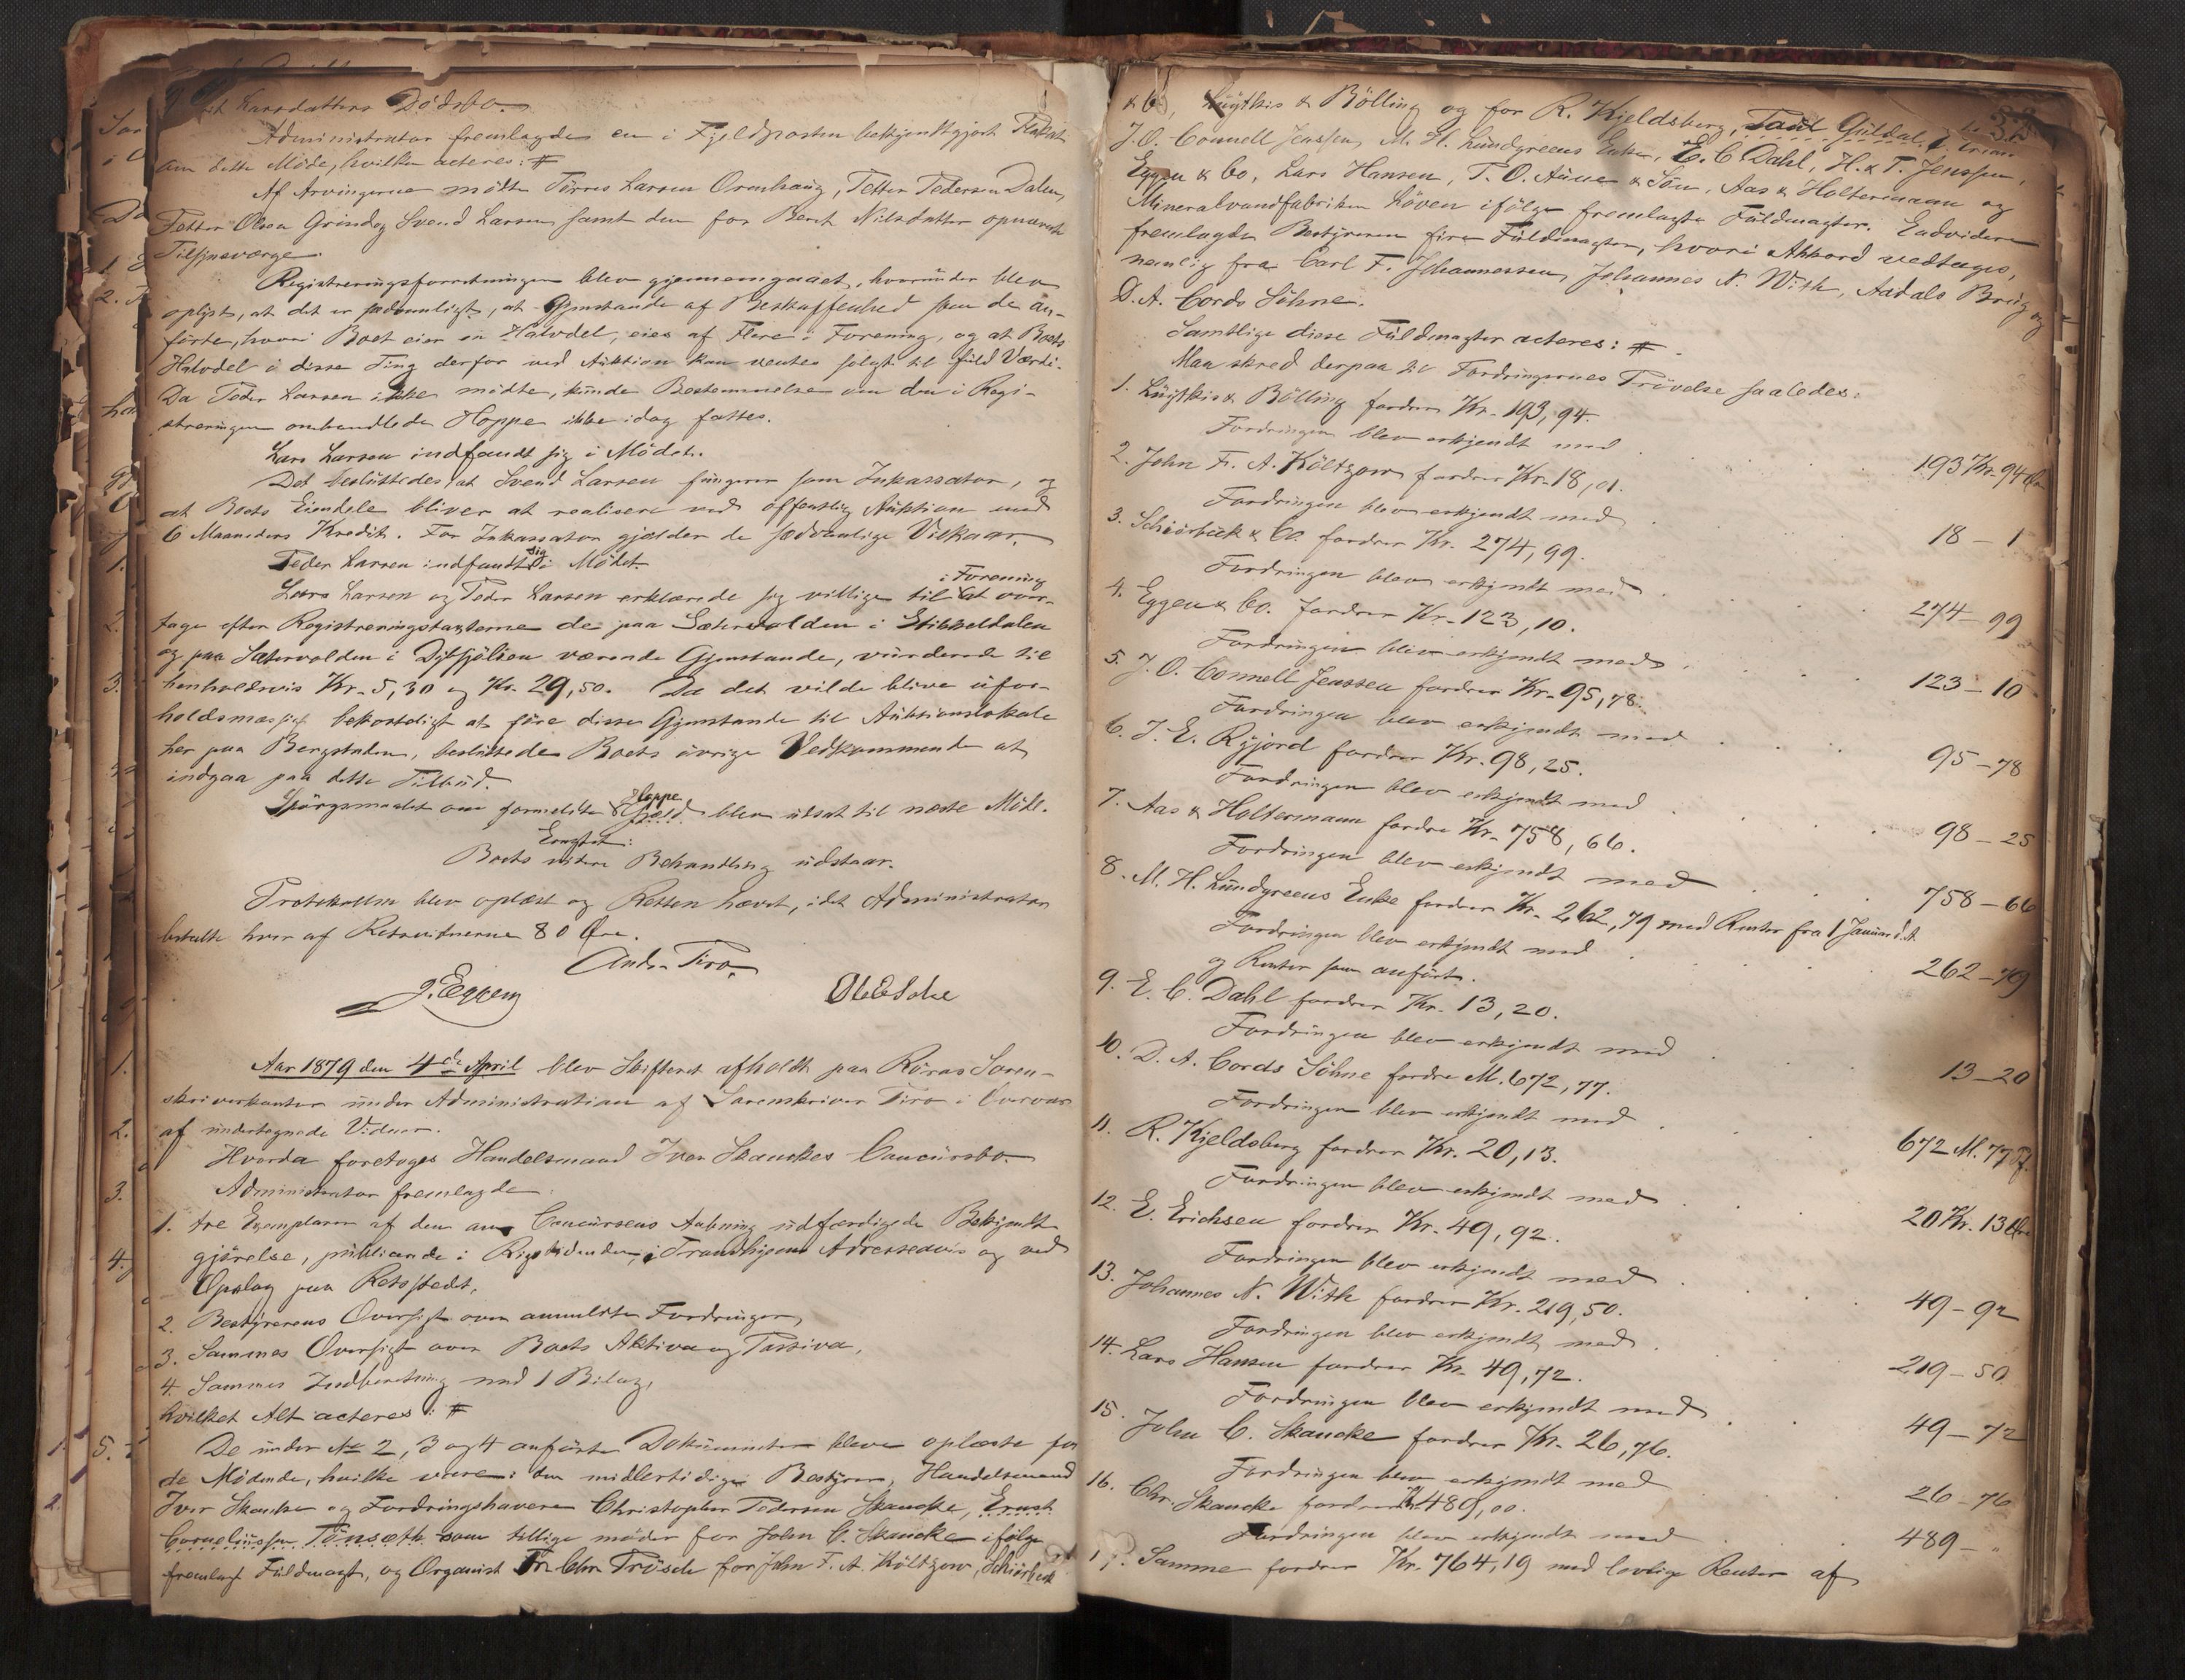 Larsdatters Dødsbo.
Administrator fremlagde en i Fjeldposten bekjendtgjort Plakat
om dette Møde, hvilken acteres: #
Af Arvingerne mødte Tørres Larsen Ormhaug, Petter Pedersen Dalen,
Petter Olsen Grind og Svend Larsen samt den for Berit Nilsdatter opnævnte
Tilsynsværge.
Registreringsforretningen blev gjennemgaaet, hvorunder blev
oplyst, at det er sædvanligt, at Gjenstande af Beskaffenhed som de an-
førte, hvori Boet eier en Halvdel, eies af Flere i Forening, og at Boets
Halvdel i disse Ting derfor ved Auktion kan ventes solgt til fuld Værdi.
Da Peder Larsen ikke mødte, kunde Bestemmelse om den i Regi-
streringen omhandlede Hoppe ikke idag fattes.
Lars Larsen indfandt sig i Mødet.
Det besluttedes at Svend Larsen fungerer som Inkassator, og
at Boets Eiendele bliver at realisere ved offentlig Auktion med
6 Maaneders Kredit. For Inkassator gjælder de sædvanlige Vilkaar.
Peder Larsen indfandt sig i Mødet.
Lars Larsen og Peder Larsen erklærede sig villige til i Forening at over-
tage efter Registreringstaxterne de paa Sætervolden i Stikkeldalen
og paa Sætervolden i Dybsjølien værende Gjenstande, vurderede til
henholdsvis Kr. 5,30 og Kr. 29,50. Da det vilde blive ufor-
holdsmæssigt bekosteligt at føre disse Gjenstande til Auktionslokale
her paa Bergstaden, besluttede Boets øvrige Vedkommende at
indgaa paa dette Tilbud.
Spørgsmaalet om formeldte Hoppe blev udsat til næste Møde.
Eragtet:
Boets videre Behandling udstaar.
Protokollen blev oplæst og Retten hævet, idet Administrator
betalte hver af Retsvidnerne 80 Øre.
Andr. Piro.
J. Eggen
Aar 1879 den 4de April blev Skifteret afholdt paa Røros Soren-
skriverkontor under Administration af Sorenskriver Piro i Overvær
af undertegnede Vidner.
Hvorda foretoges Handelsmand Iver Skanckes Concursbo.
Administrator fremlagde:
1. tre Exemplarer af den om Concursens Aabning udfærdigede Bekjendt-
gjørelse, publicerede i Rigstidenden, i Trondhjems Adresseavis og ved
Opslag paa Retsstedet,
2. Bestyrerens Oversigt over anmeldte Fordringer,
3. Sammes Oversigt over Boets Aktiva og Passiva,
4. Sammes Indberetning med 1 Bilag,
hvilket Alt acteres: #
De under No 2, 3 og 4 anførte Dokumenter bleve oplæste for
de Mødende, hvilke vare: den midlertidige Bestyrer, Handelsmand
Iver Skancke og Fordringshaverne Christopher Pedersen Skancke, Ernst
Corneliussen Tønsæth som tillige møder for John C. Skancke ifølge
fremlagt Fuldmagt, og Organist Fr. Chr. Prösch for John F. A. Költzow, Schiørbeck
& Co, Lüytkis & Bölling og for R. Kjeldsberg, Paul Guldal,
J. O. Connell Jenssen, M. H. Lundgreens Enke, E. C. Dahl, H. & T. Jenssen,
Eggen & Co, Lars Hansen, T. O. Aune & Søn, Aas & Holtermann og
Mineralvandfabriken Løven ifølge fremlagte Fuldmagter. Endvidere
fremlagde Bestyreren fire Fuldmagter, hvori Akkord vedtages,
nemlig fra Carl F. Johannessen, Johannes N. With, Aadals Brug og
D. A. Cords Söhne.
Samtlige disse Fuldmagter acteres: #
Man skred derpaa til Fordringernes Prøvelse saaledes:
1. Lüytkis & Bölling fordrer Kr. 193,94.
Fordringen blev erkjendt med . 193 Kr. 94 Øre
2. John F. A. Költzow fordrer Kr. 18,01.
Fordringen blev erkjendt med . 18 – 1
3. Schiørbeck & Co. fordrer Kr. 274,99.
Fordringen blev erkjendt med . 274 – 99
4. Eggen & Co. fordrer Kr. 123,10.
Fordringen blev erkjendt med . 123 – 10
5. J. O. Connell Jenssen fordrer Kr. 95,78.
Fordringen blev erkjendt med . 95 – 78
6. J. E. Ryjord fordrer Kr. 98,25.
Fordringen blev erkjendt med . 98 – 25
7. Aas & Holtermann fordrer Kr. 758,66.
Fordringen blev erkjendt med . 758 – 66
8. M. H. Lundgreens Enke fordrer Kr. 262,79 med Renter fra 1 Januar d. A.
Fordringen blev erkjendt med . 262 – 79
og Renter som anført.
9. E. C. Dahl fordrer Kr. 13,20.
Fordringen blev erkjendt med . 13 – 20
10. D. A. Cords Söhne fordrer M. 672,77.
Fordringen blev erkjendt med . 672 M. 77 Pf.
11. R. Kjeldsberg fordrer Kr. 20,13.
Fordringen blev erkjendt med . 20 Kr. 13 Øre
12. E. Erichsen fordrer Kr. 49,92.
Fordringen blev erkjendt med . 49 – 92
13. Johannes N. With fordrer Kr. 219,50.
Fordringen blev erkjendt med . 219 – 50
14. Lars Hansen fordrer Kr. 49,72.
Fordringen blev erkjendt med . 49 – 72
15. John C. Skancke fordrer Kr. 26,76.
Fordringen blev erkjendt med . 26 – 76
16. Chr. Skancke fordrer Kr. 489,00.
Fordringen blev erkjendt med . 489 – "
17. Samme fordrer Kr. 764,19 med lovlige Renter af